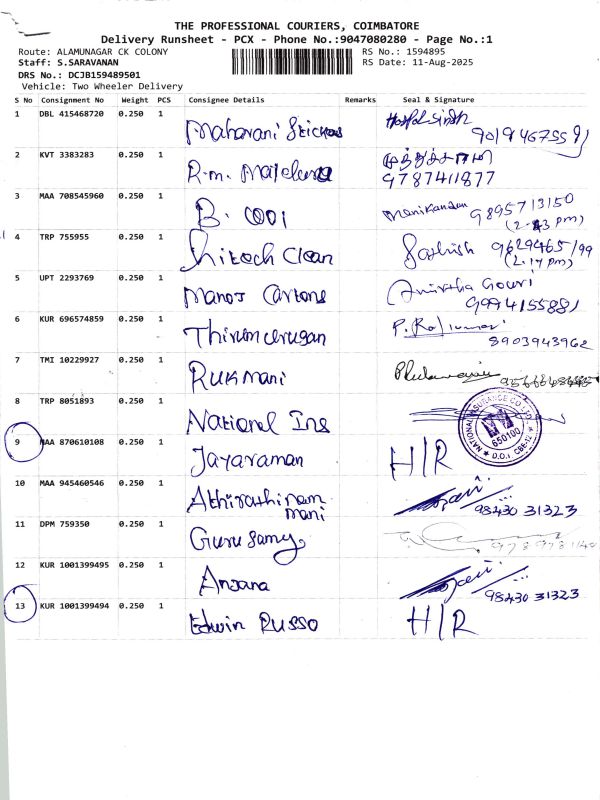 THE PROFESSIONAL COURIERS, COIMBATORE
Delivery Runsheet - PCX - Phone No.:9047080280 - Page No.:1
Route: ALAMUNAGAR CK COLONY
RS No.: 1594895
Staff: S.SARAVANAN
RS Date: 11-Aug-2025
DRS No.: DCJB159489501
Vehicle: Two Wheeler Delivery
S No Consignment No Weight PCS Consignee Details Remarks Seal & Signature
1 DBL 415468720 0.250 1 Maharani
2 KVT 3383283 0.250 1 R.m.
9787411877
3 MAA 708545960 0.250 1 B. Manikandan 9895713150
(2.43 pm)
4 TRP 755955 0.250 1 hitech Clean Sathish 9629465199
(2.17 pm)
5 UPT 2293769 0.250 1 Manoj Cartons Anirtha Gouri
9994155881
6 KUR 696574859 0.250 1 Thirumurugan P. Rajkumari
8903943962
7 TMI 10229927 0.250 1 Rukmani
8 TRP 8051893 0.250 1 National Ins
NATIONAL INSURANCE CO. LTD.
650100
D.O.I. CBE-12
9 MAA 870610108 0.250 1 Jayaraman H/R
10 MAA 945460546 0.250 1 Athirathinam
mani
98430 31323
11 DPM 759350 0.250 1 Gurusamy
12 KUR 1001399495 0.250 1 Ansana
98430 31323
13 KUR 1001399494 0.250 1 Edwin Russo H/R